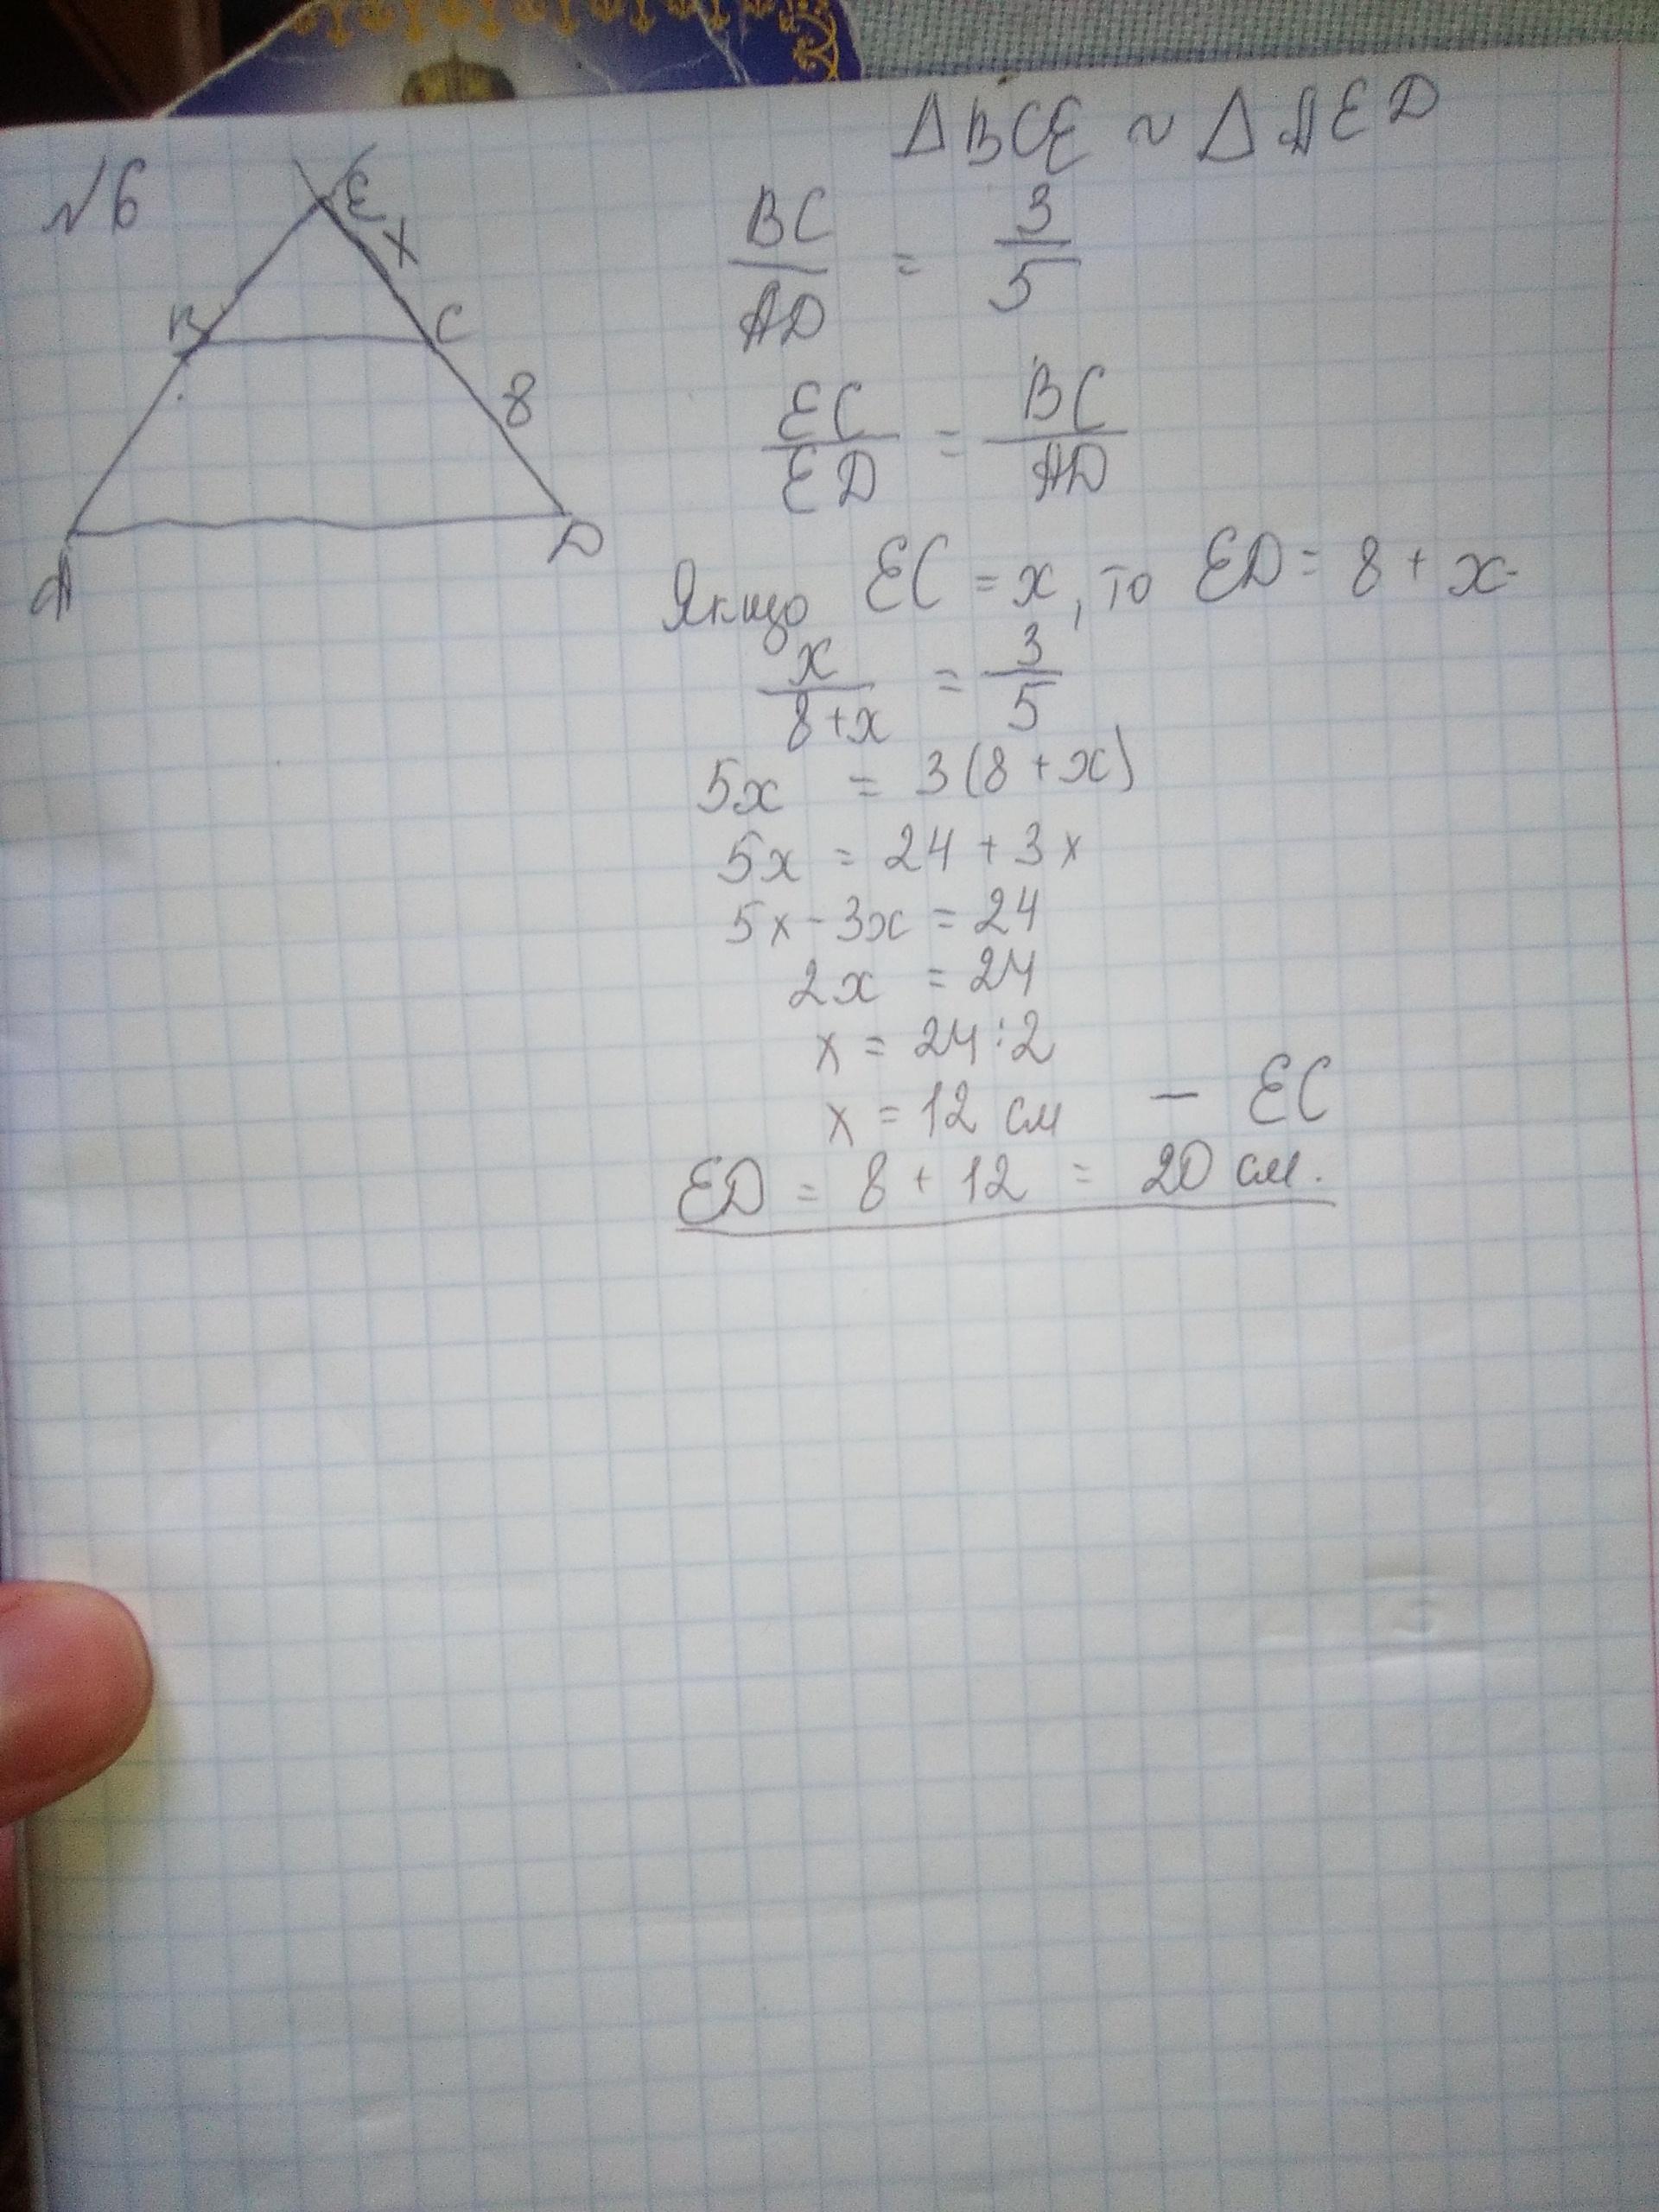 №6
E
x
B
C
8
A
D
Δ BCE ~ Δ AED
BC/AD = 3/5
EC/ED = BC/AD
Якщо EC = x, то ED = 8 + x
x/8+x = 3/5
5x = 3(8 + x)
5x = 24 + 3x
5x - 3x = 24
2x = 24
x = 24:2
x = 12 см — EC
ED = 8 + 12 = 20 см.